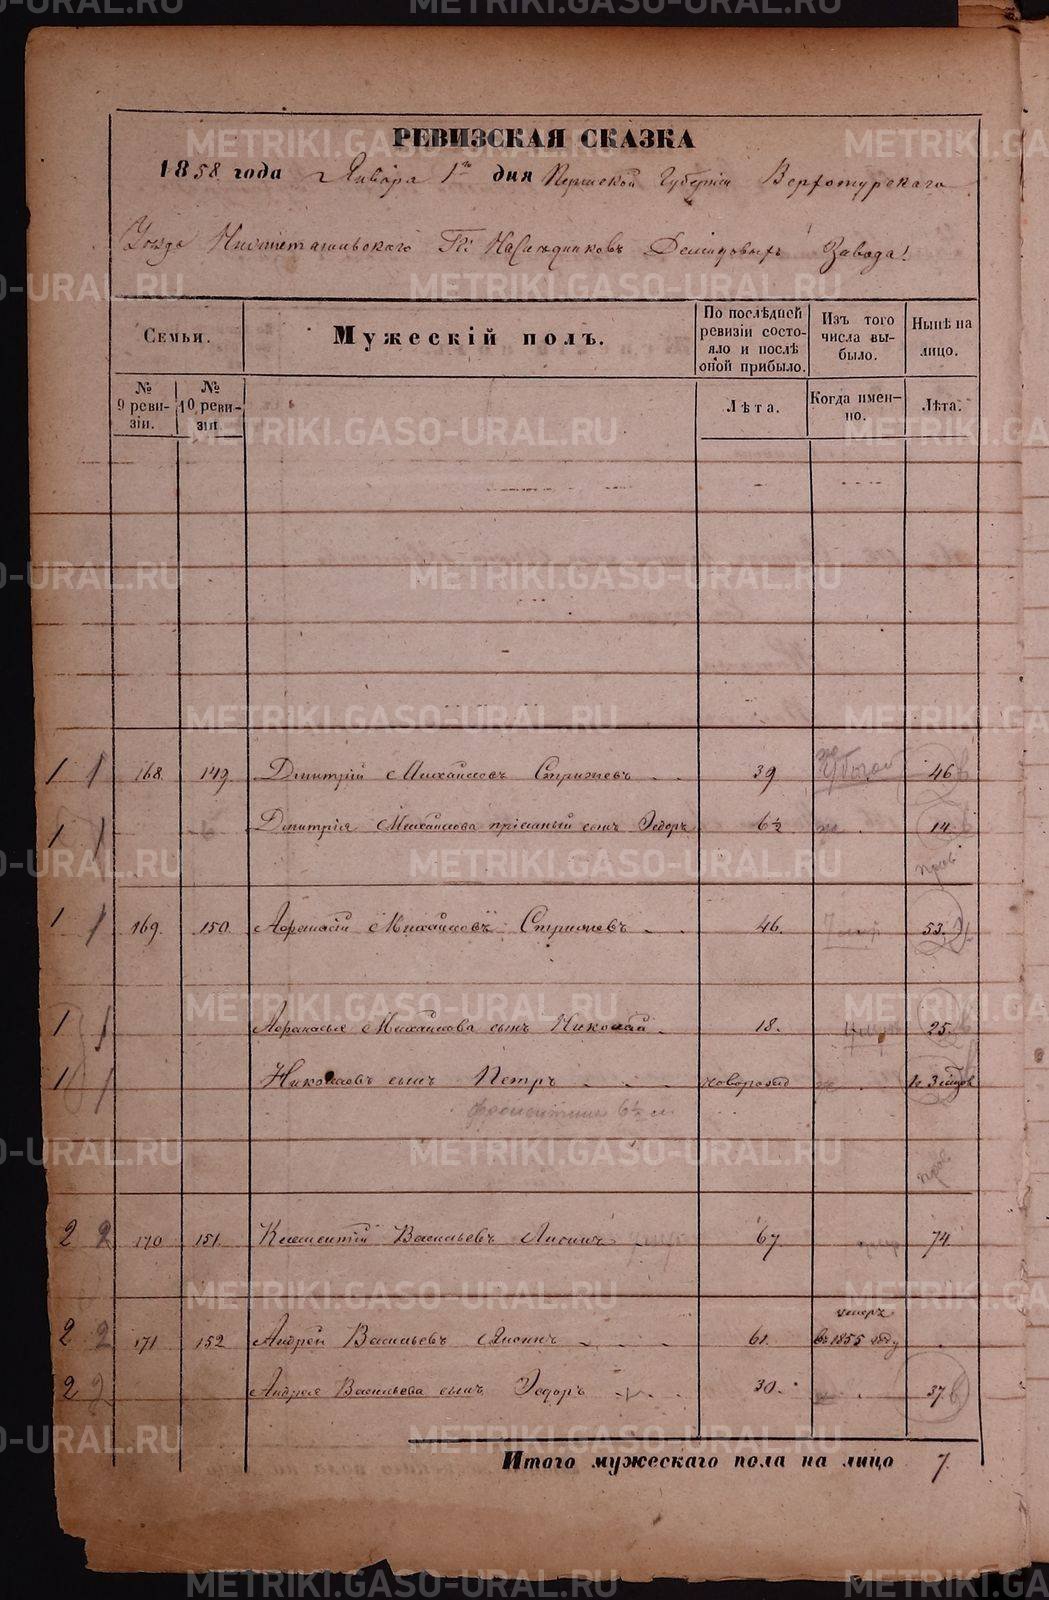 РЕВИЗСКАЯ СКАЗКА
1858 года Января 1го дня Пермской Губерніи Верхотурскаго
Уѣзда Нижнетагильскаго Гг: Наслѣдниковъ Демидовыхъ Завода!
Семьи.
Мужескій полъ.
По послѣдней ревизіи состояло и послѣ оной прибыло.
Изъ того числа выбыло.
Нынѣ на лицо.
№ 9 ревизіи.
№ 10 ревизіи.
Лѣта.
Когда именно.
Лѣта.
1 1 168. 149. Дмитрій Михайловъ Стрижевъ 39 46
1 1 Дмитрія Михайлова пріемный сынъ Ѳедоръ 6½ 14.
1 1 169. 150. Афанасій Михайловъ Стрижевъ 46. 53.
1 1 Афанасья Михайлова сынъ Николай 18. 25.
1 1 Николаевъ сынъ Петръ новорожд
6½
2 2 170 151. Климентій Васильевъ Лисинъ 67 74.
2 2 171 152 Андрей Васильевъ Лисинъ 61. умеръ въ 1855 году
2 2 Андрея Васильева сынъ Ѳедоръ 30. 37.
Итого мужескаго пола на лицо 7.
METRIKI.GASO-URAL.RU